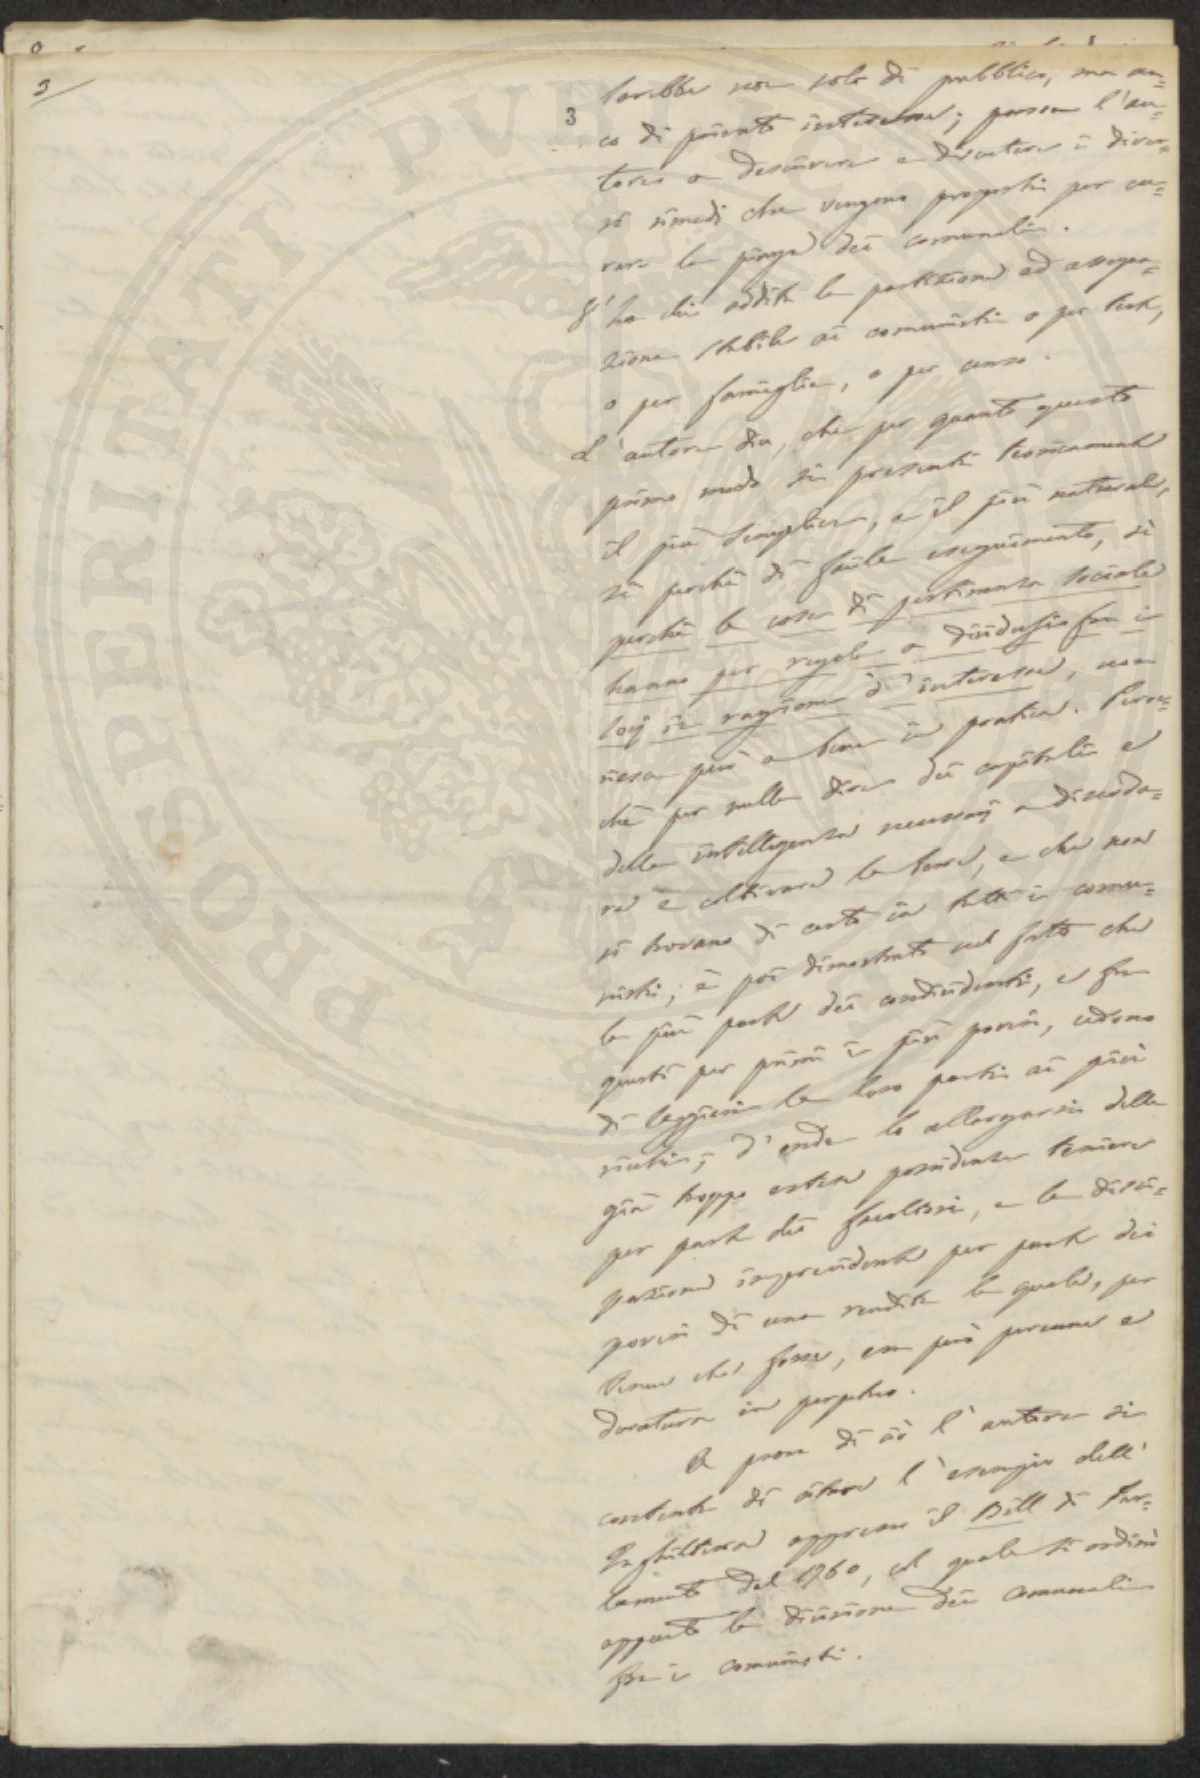 3
3
sarebbe non solo di pubblico, ma an=
co di privato interesse; passa l'au=
tore a descrivere e discutere i diver=
si rimedi che vengono proposti per cu=
rare la piaga dei comunali.
V'ha chi addita la partizione ed assegna=
zione stabile ai comunisti o per teste,
o per famiglie, o per censo.
L'autore dice, che per quanto questo
primo modo si presenti teoricamente
il più semplice, e il più naturale,
sì perché di facile eseguimento, sì
perché le cose di pertinenza sociale
hanno per regola a dividersi fra i
socj in ragione d'interesse, non
riesce però a bene in pratica. Peroc=
ché per nulla dire dei capitali e
della intelligenza necessarj a dissoda=
re e coltivare la terra, e che non
si trovano di certo in tutti i comu=
nisti; è poi dimostrato nel fatto che
la più parte dei condividenti, e fra
questi per primi i più poveri, cedono
di leggieri le loro parti ai più
ricchi; d'onde lo allargarsi della
già troppo estesa possidenza terriera
per parte dei facoltosi, e la dissi=
pazione improvvidente per parte dei
poveri di una rendita la quale, per
tenue che fosse, era però perenne e
duratura in perpetuo.
A prova di ciò l'autore si
contenta di citare l'esempio dell'
Inghilterra appresso il Bill di Par=
lamento del 1760, col quale si ordinò
appunto la divisione dei comunali
fra i comunisti.
PROSPERITATI PUBLICAE